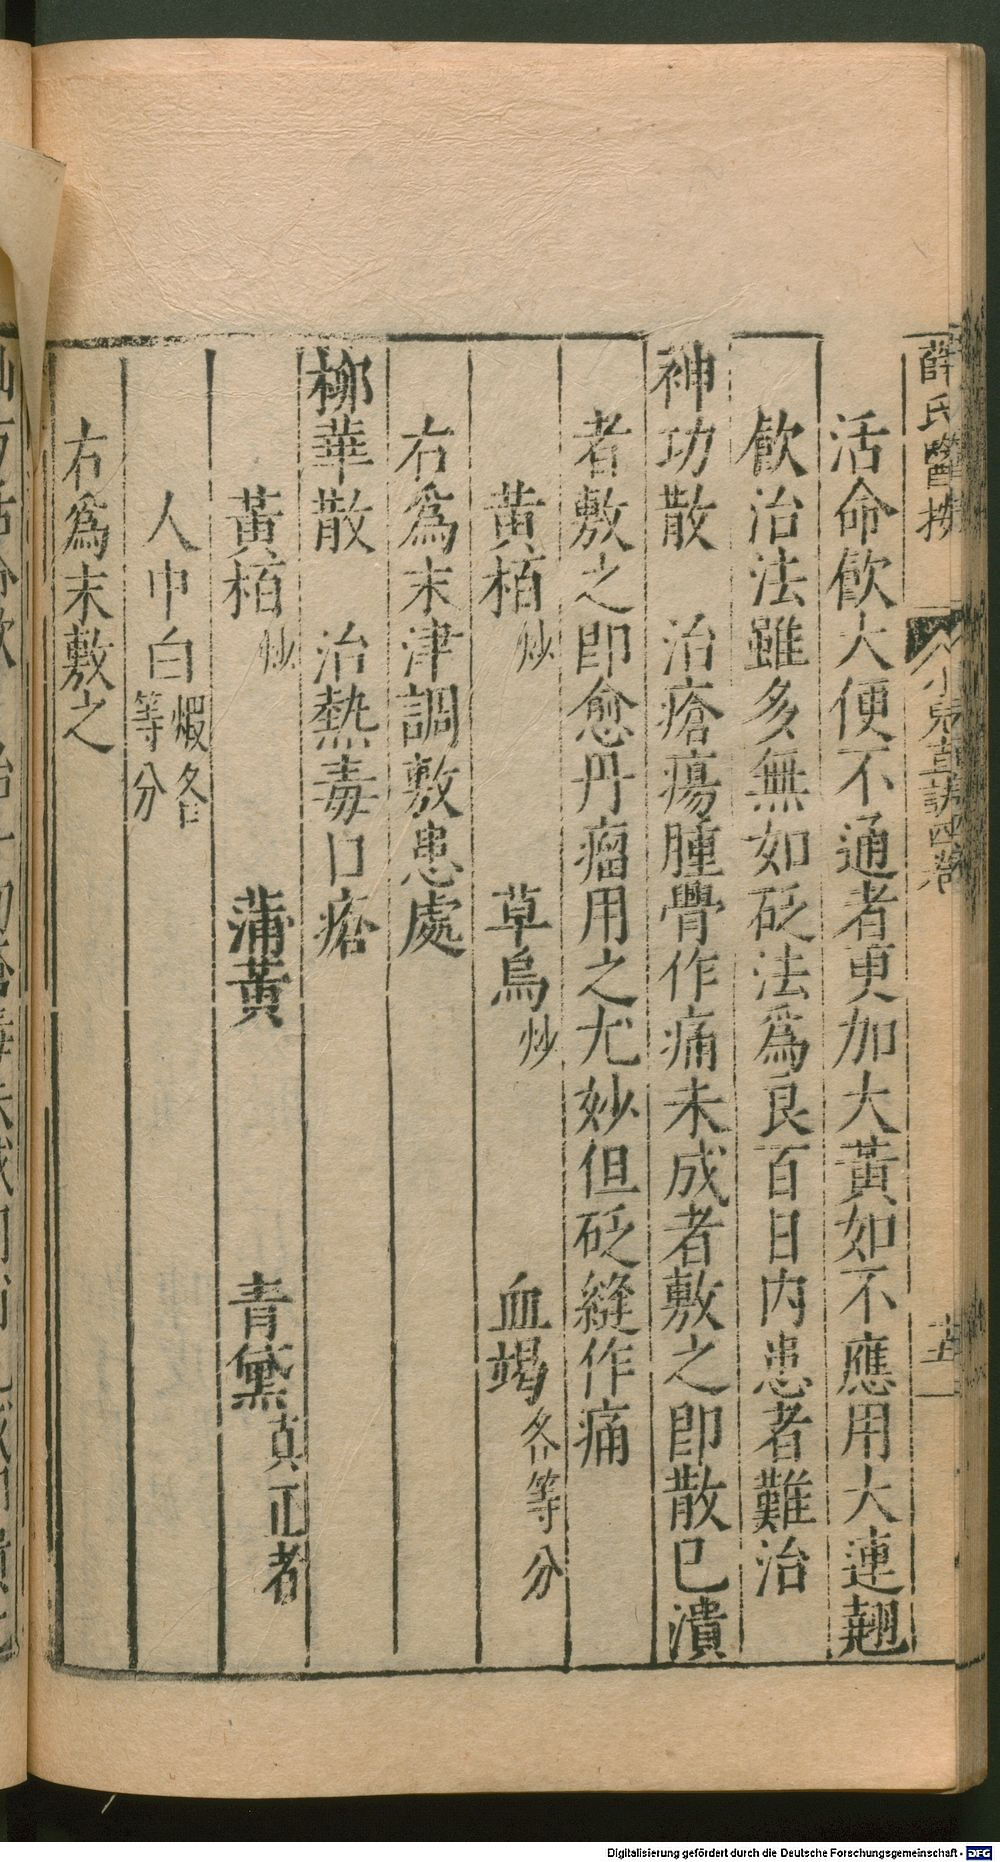 薛氏醫按 小兒直訣四卷 十五
活命飮大便不通者更加大黃如不應用大連翹
飮治法雖多無如砭法爲良百日內患者難治
神功散 治瘡瘍腫骨作痛未成者敷之即散已潰
者敷之即愈丹瘤用之尤妙但砭縫作痛
黃栢炒 草烏炒 血竭各等分
右爲末津調敷患處
柳華散 治熱毒口瘡
黃栢炒 蒲黃 青黛真正者
人中白煅各等分
右爲末敷之
Digitalisierung gefördert durch die Deutsche Forschungsgemeinschaft - DFG